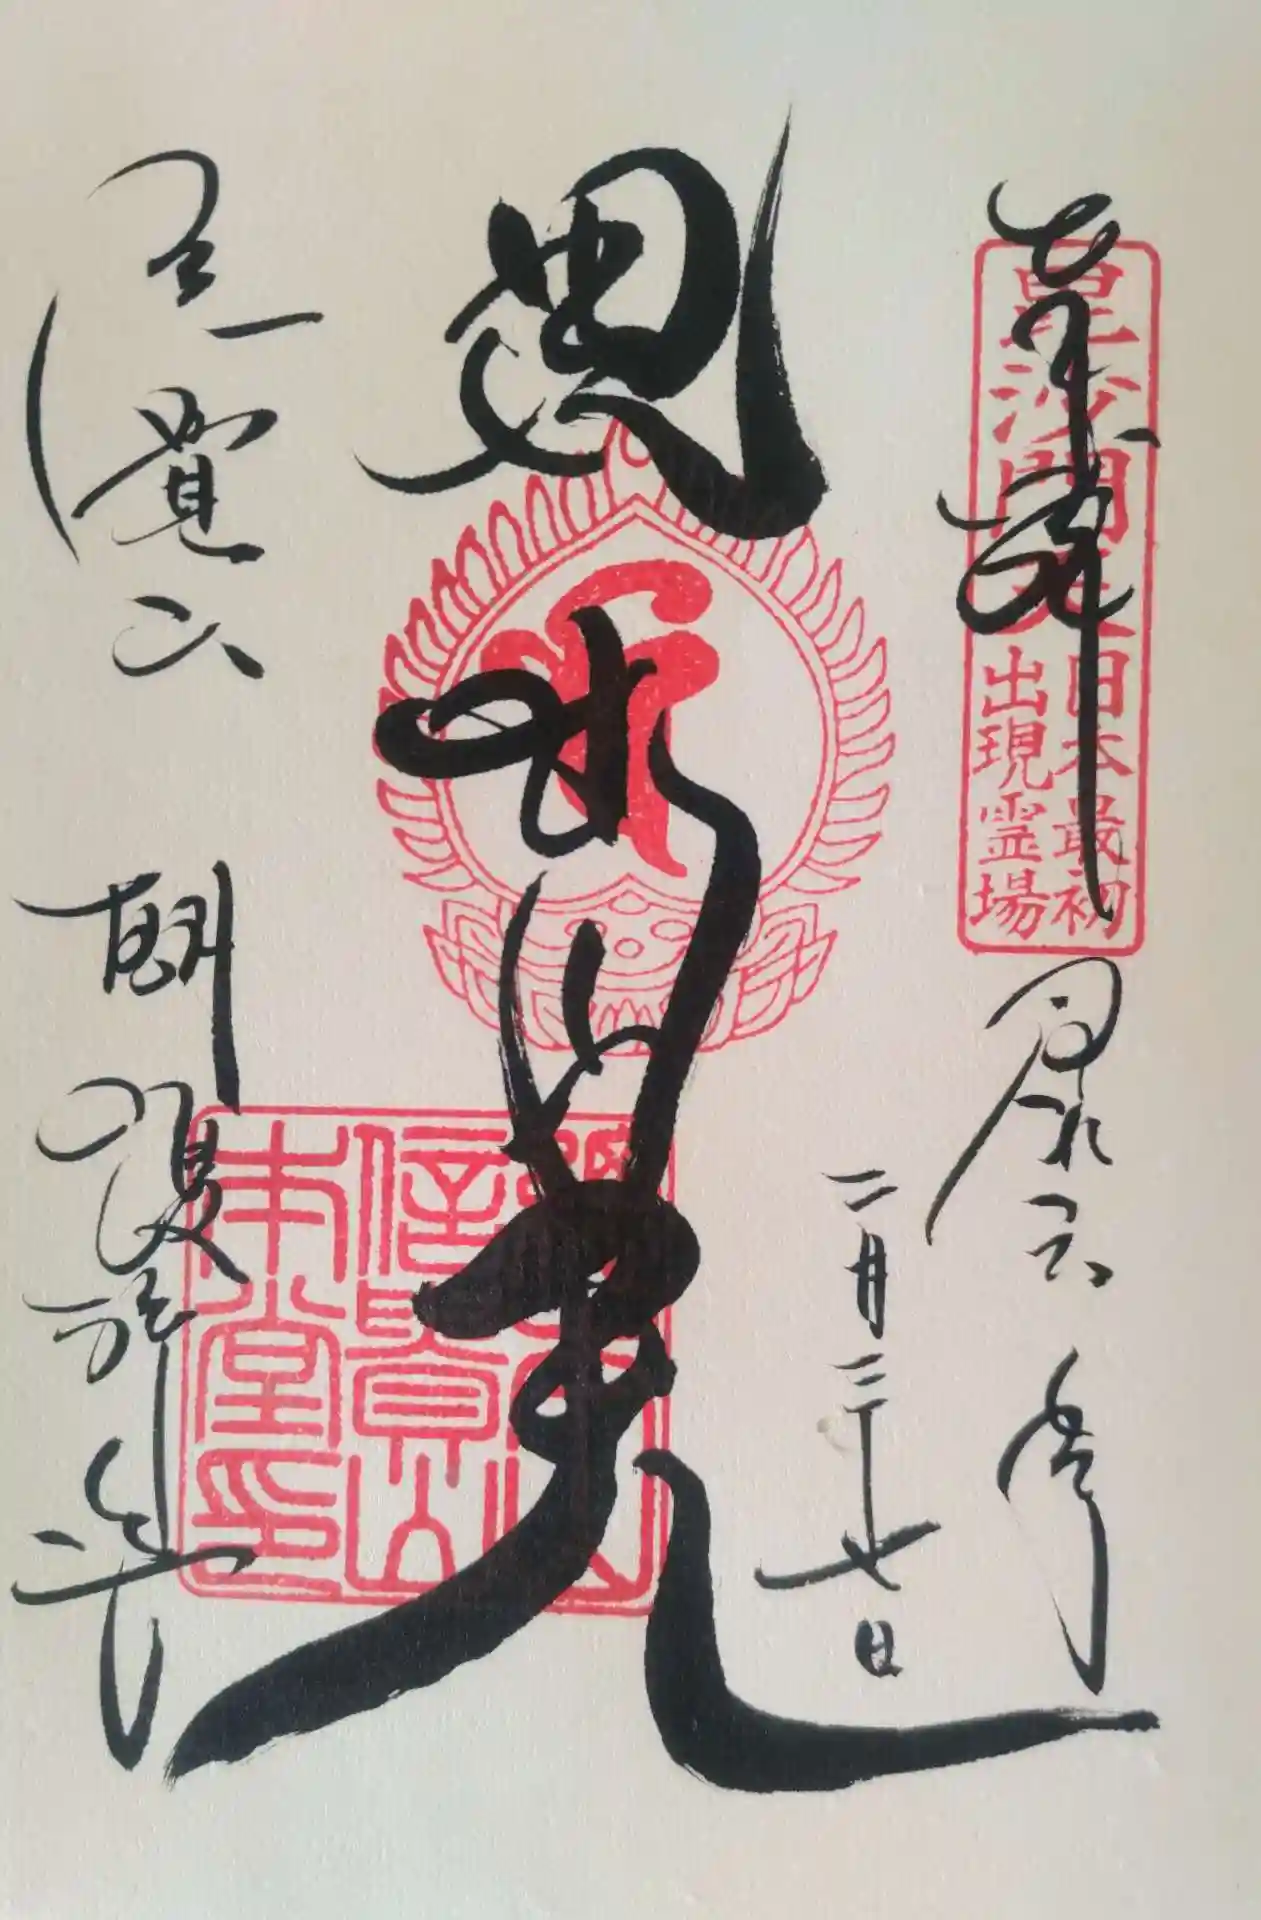 奉拝
毘沙門天
日本最初
出現霊場
二月二十七日
毘沙門天
信貴山
本堂印
信貴山 朝護孫子寺